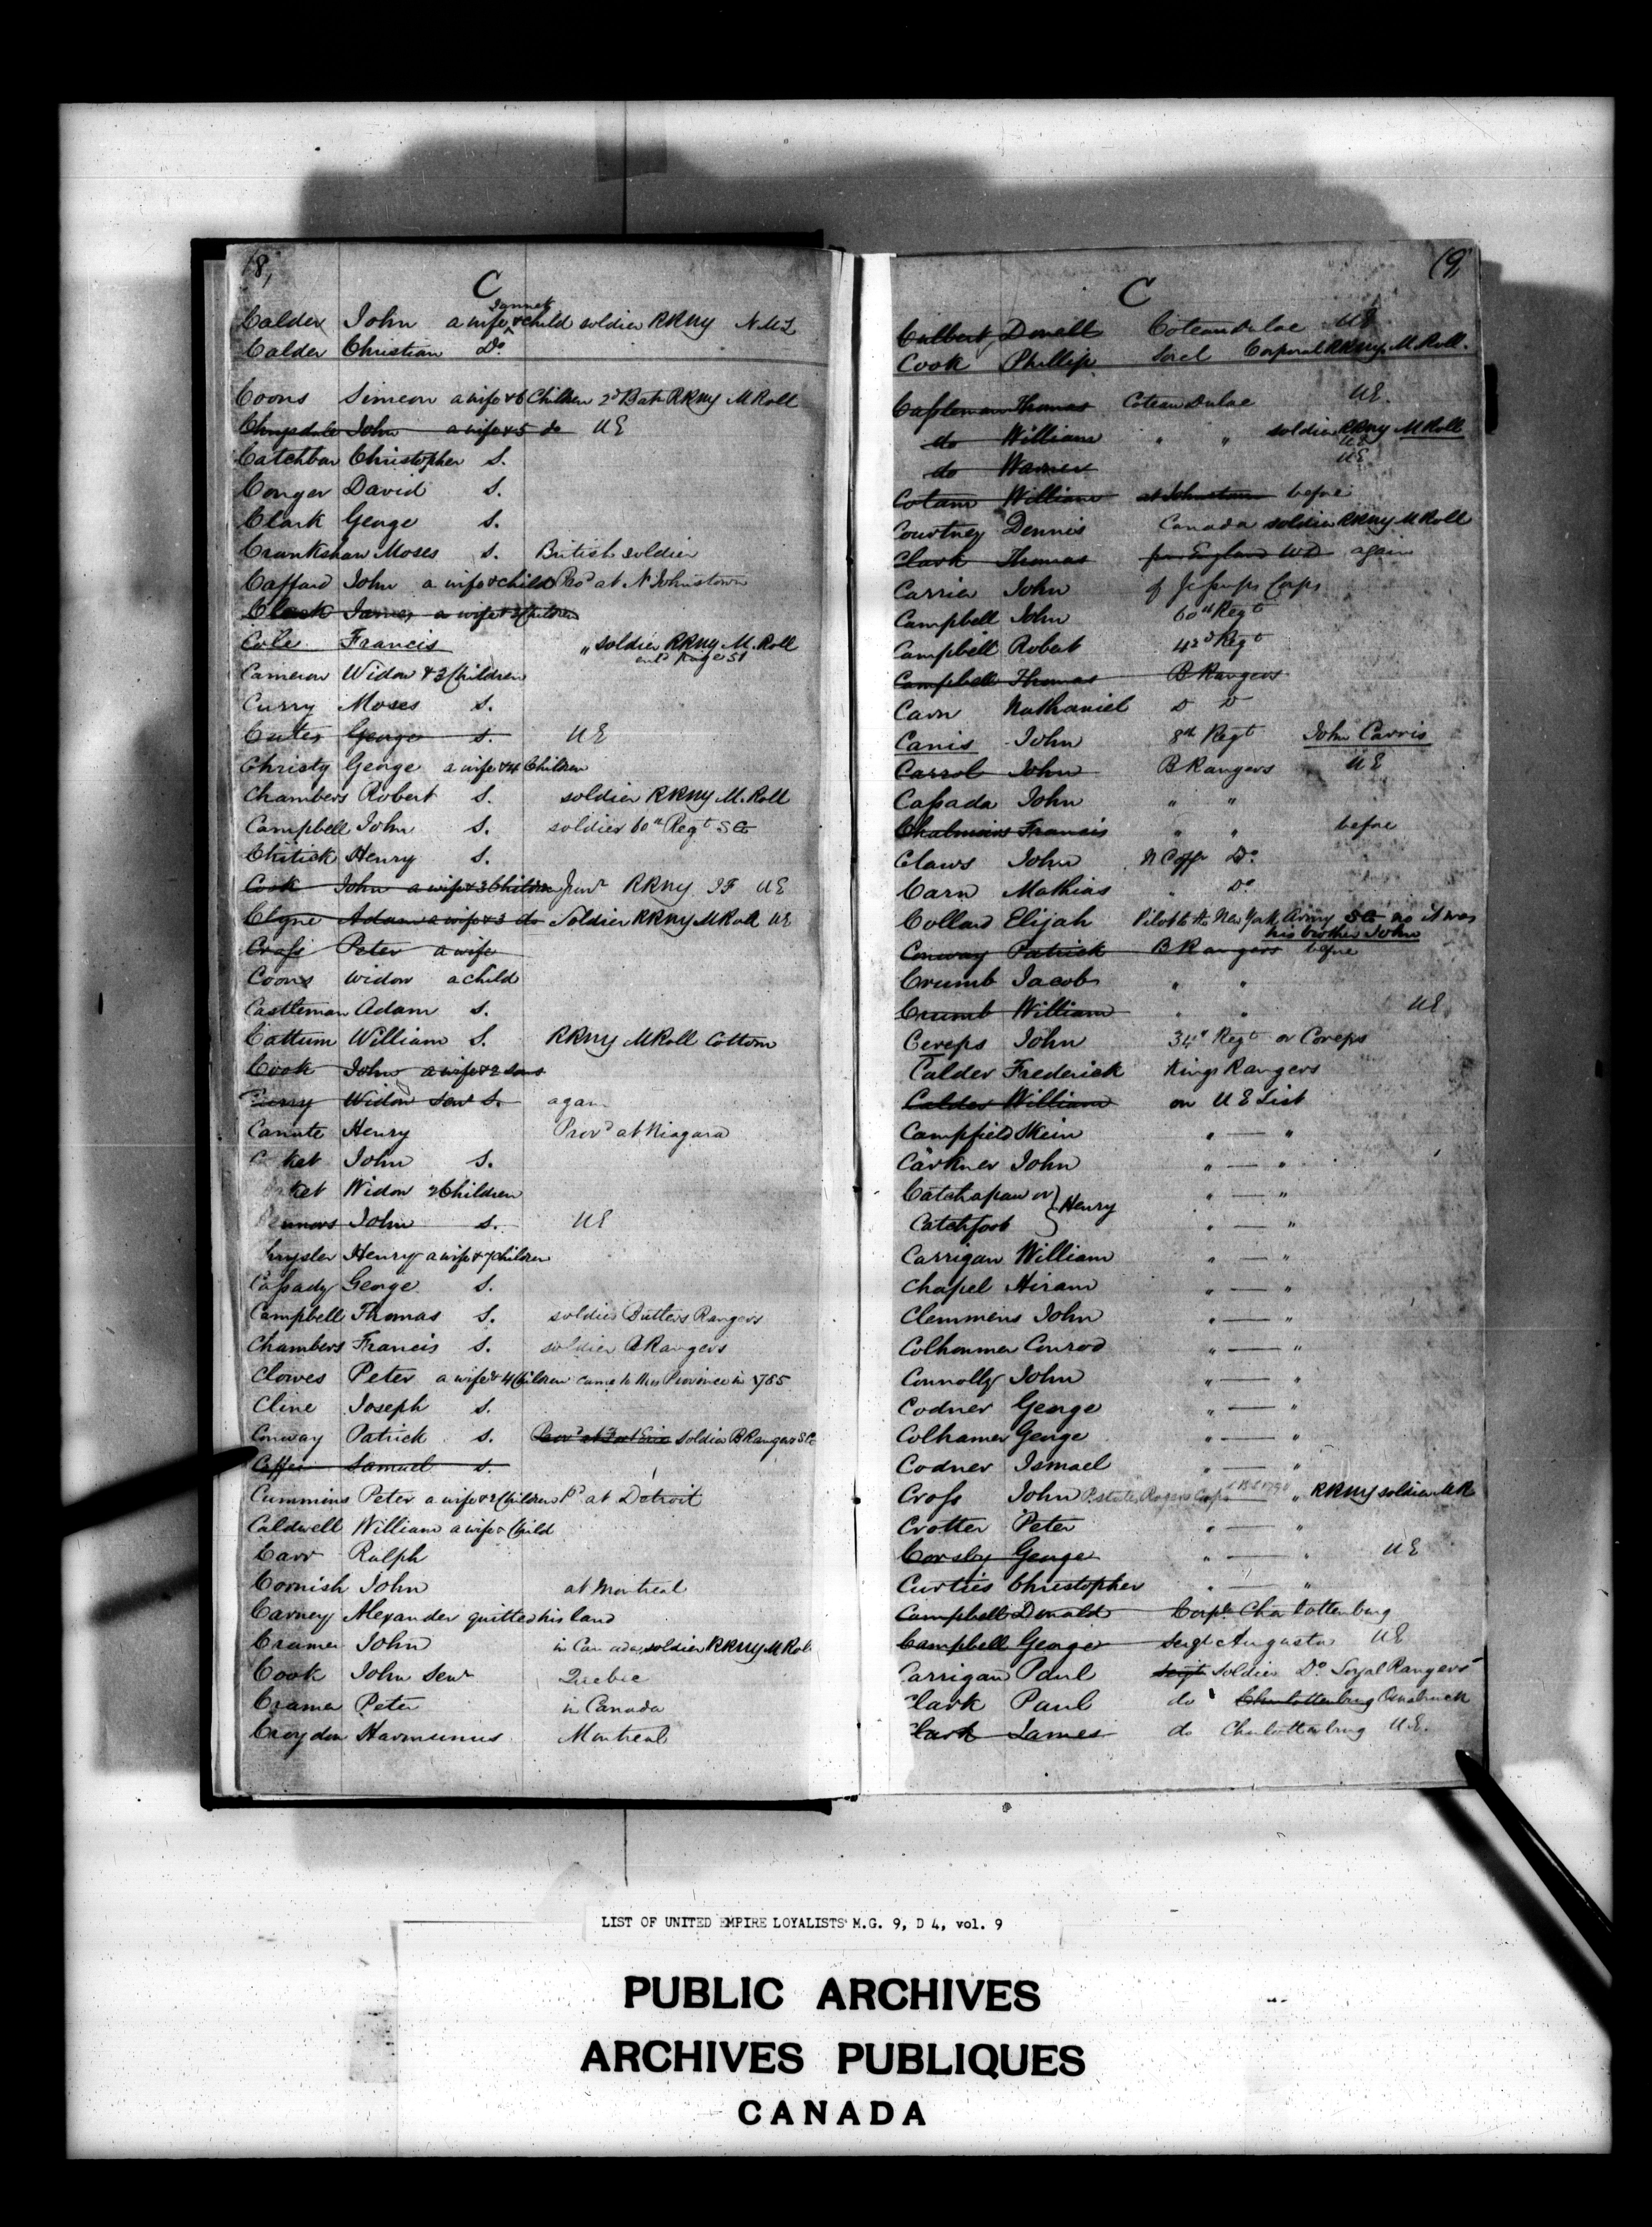 18,
C
Calder John a wife Jannet & child soldier RRNY N.U.L
Calder Christian Do
Coons Simeon a wife & 6 Children 2d Bat RRNY M Roll
John a wife & 5 do UE
Catchbar Christopher S.
Conger David S.
Clark George S.
Crankshaw Moses S. British soldier
Caffard John a wife & child at N Johnstown
Clark James a wife & 3 Children
Cole Francis „ soldier RRNY M. Roll
entd Page 51
Cameron Widow & 3 Children
Curry Moses S.
Cutes George S. UE
Christy George a wife & 4 Children
Chambers Robert S. soldier RRNY M. Roll
Campbell John S. soldier 60th Regt SG
Chitick Henry S.
Cook John a wife & 3 Children Junr RRNY IF UE
Clyne Adam a wife & 3 do Soldier RRNY M Roll UE
Cross Peter a wife
Coons Widow a child
Castleman Adam S.
Cattum William S. RRNY M Roll Cottom
Cook John a wife & 2 sons
Curry Widow Senr S. again
Canute Henry Provd at Niagara
ket John S.
ket Widow 2 Children
John S. UE
hrysler Henry a wife & 7 children
Cassady George S.
Campbell Thomas S. soldier Butlers Rangers
Chambers Francis S. soldier Rangers
Clowes Peter a wife & 4 Children came to this Province in 1785
Cline Joseph S.
Conway Patrick S. Provd at Fort Erie soldier B Rangers SG
Coffin Samuel S.
Cummins Peter a wife & 2 Children Pd at Detroit
Caldwell William a wife & Child
Carr Ralph
Cornish John at Montreal
Carney Alexander quitted his land
Cramer John in Canada soldier RRNY M Rol
Cook John Senr Quebec
Cramer Peter in Canada
Croydon Harmunius Montreal
19,
C
Culbert Donall Coteau du lac UE
Cook Phillip Sorel Corporal RRNY M Roll.
Cassleman Thomas Coteau Dulac UE.
do William „ „ soldier RRNY M Roll
UE
do Warner UE
Cotam William at Johnstown before
Courtney Dennis Canada soldier RRNY M Roll
Clark Thomas from England WD again
Carrier John of Jessups Corps
Campbell John 60th Regt
Campbell Robert 42d Regt
Campbell Thomas B Rangers
Carn Nathaniel D D
Canis John 8th Regt John Carris
Carrol John B Rangers UE
Cassada John „ „
Chalmers Francis „ „ before
Claws John N Coffr Do
Carn Mathias „ Do
Collard Elijah Pilot to the New York Army SG no it was
his brother John
Conway Patrick B Rangers before
Crumb Jacob „ „
Crumb William „ „ UE
Cereps John 34th Regt or Coreps
Calder Frederick Kings Rangers
Calder William on UE List
Campfield „ — „
Carkner John „ — „
Catchapaw or } Henry „ — „
Catchfoot „ — „
Carrigan William „ — „
Chapel Hiram „ — „
Clemmens John „ — „
Colhommer Conrod „ — „
Connolly John „ — „
Codner George „ — „
Colhamer George „ — „
Codner Ismael „ — „
Cross John P. states Rogers Corps 1790 „ RRNY soldier MR
Crotter Peter „ — „
Corsby George „ — „ UE
Curties Christopher „ — „
Campbell Donald Corpl Charlottenburg
Campbell George Sergt Augusta UE
Carrigan Paul Sergt Soldier Do Loyal Rangers
Clark Paul do Charlottenburg Osnabruck
Clark James do Charlottenburg UE.
LIST OF UNITED EMPIRE LOYALISTS M.G. 9, D 4, vol. 9
PUBLIC ARCHIVES
ARCHIVES PUBLIQUES
CANADA